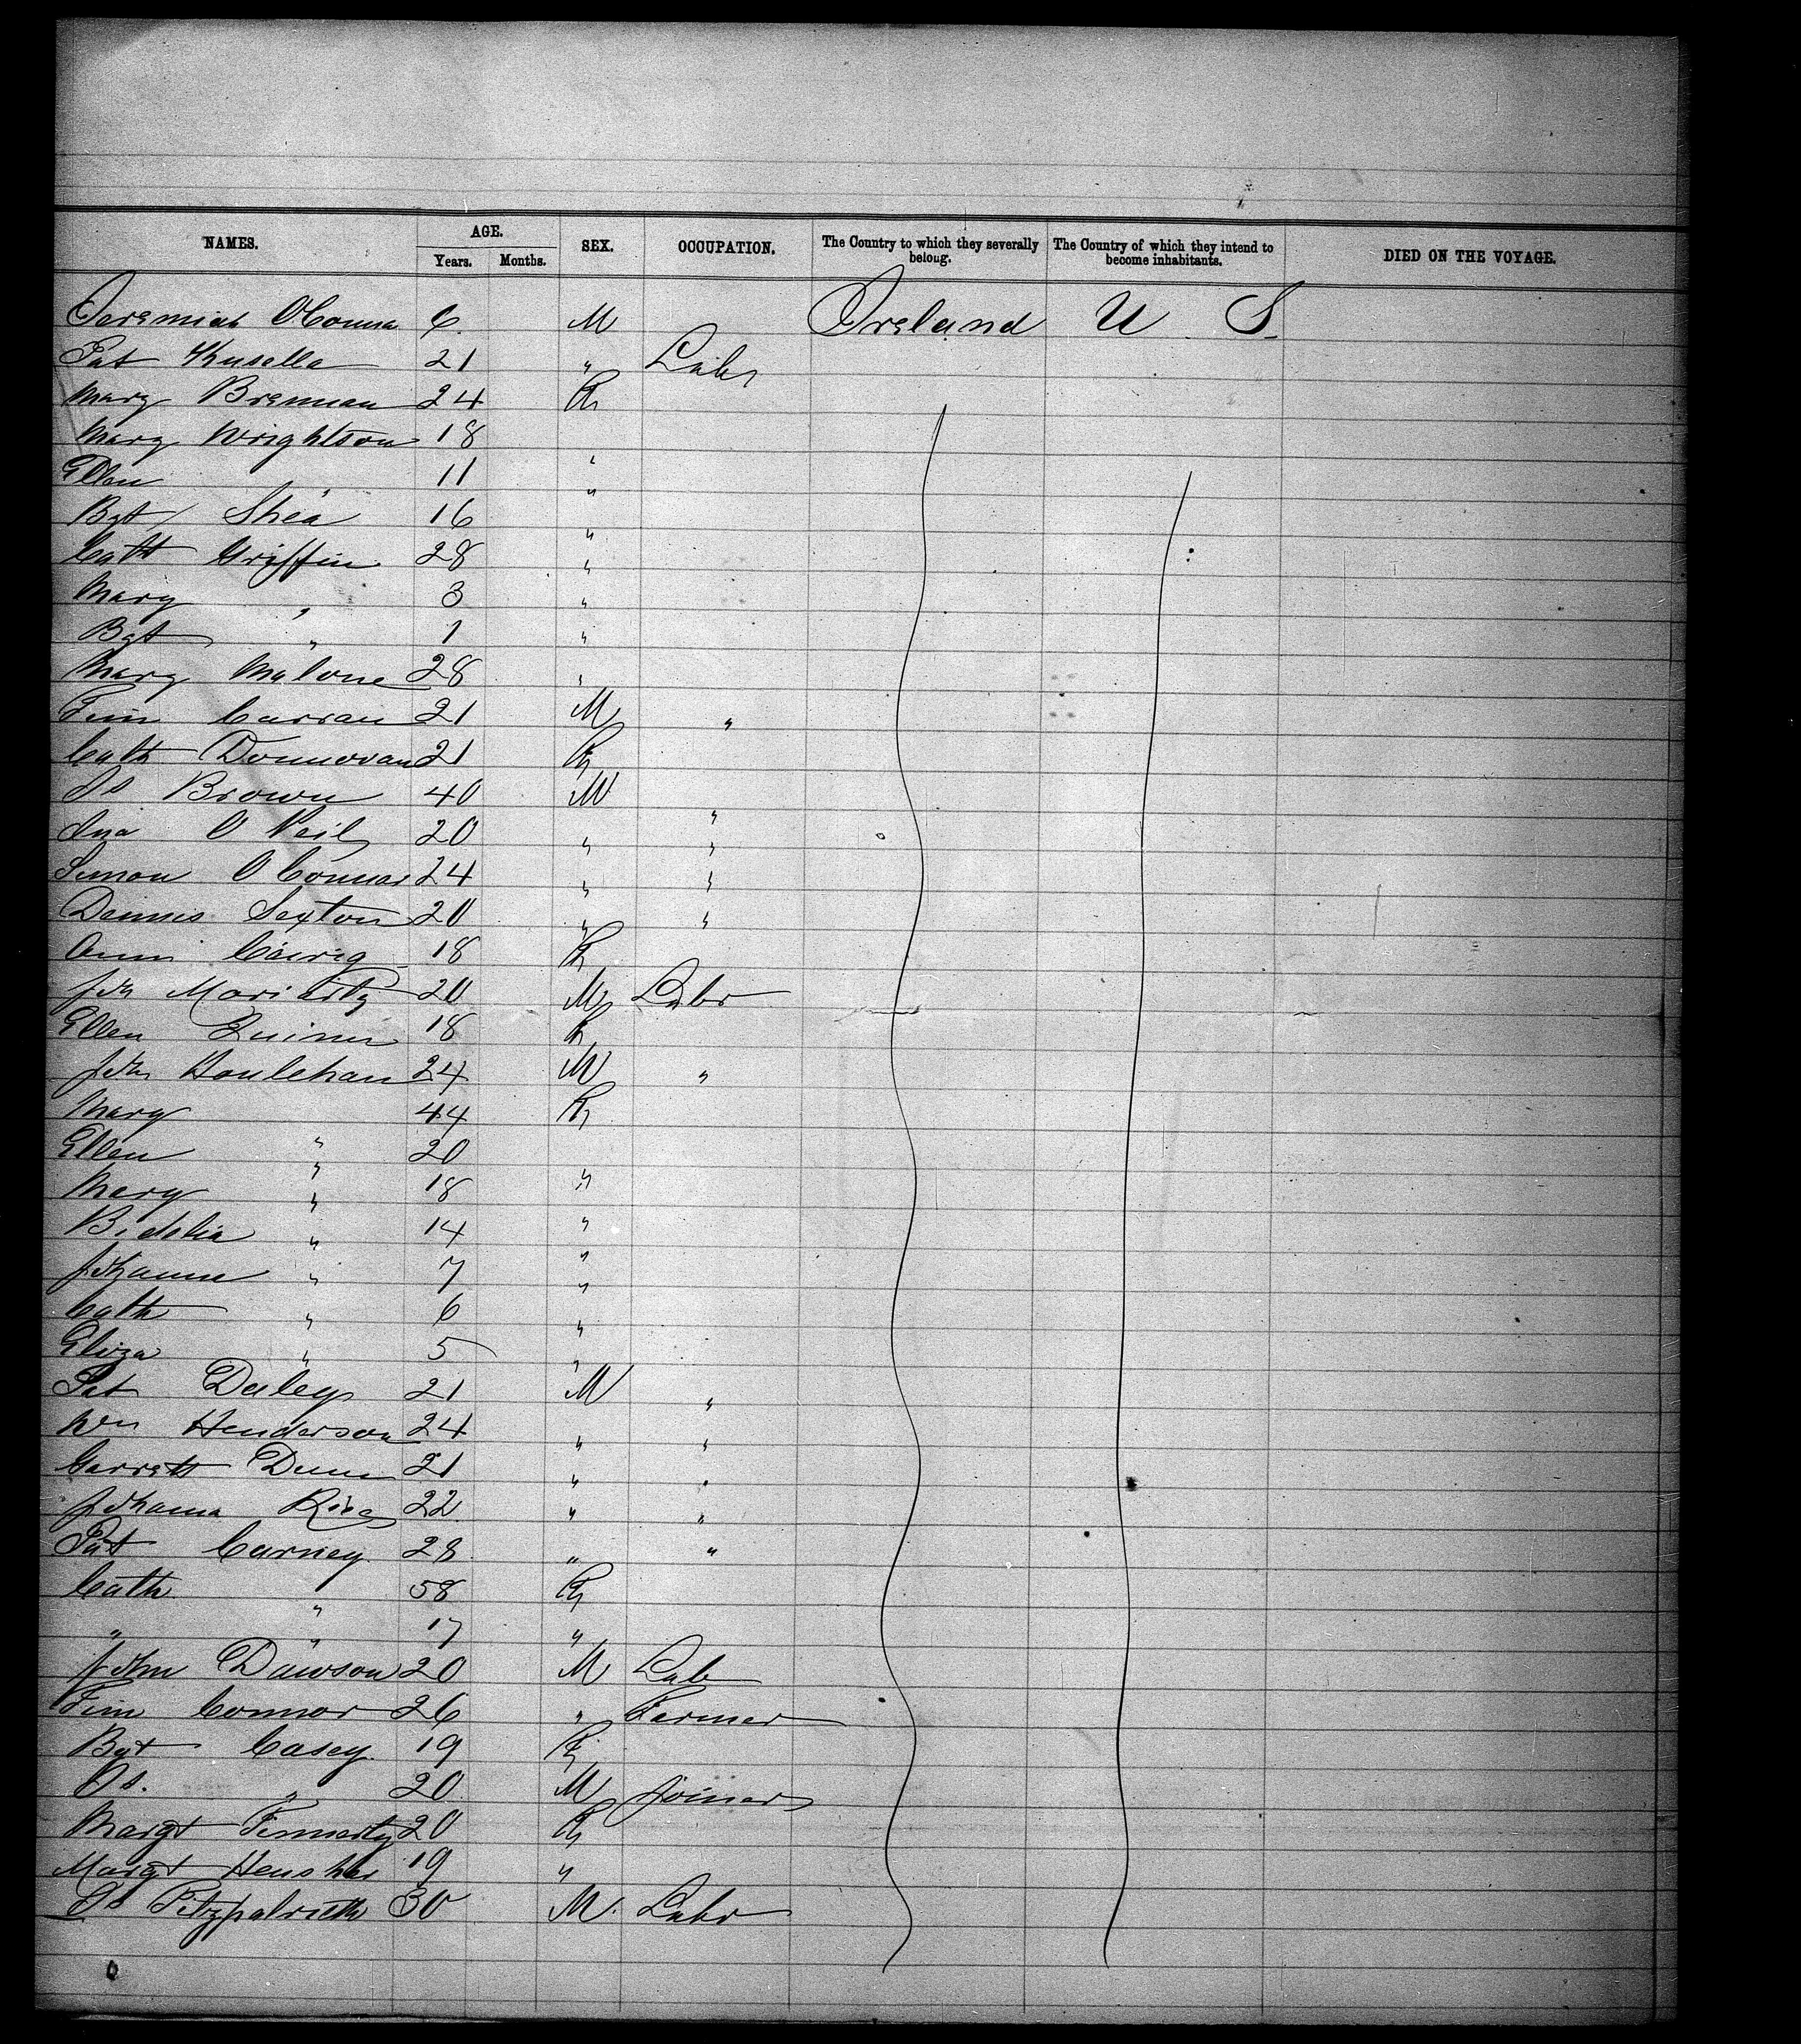 NAMES. AGE. SEX. OCCUPATION. The Country to which they severally belong. The Country of which they intend to become inhabitants. DIED ON THE VOYAGE.
Years. Months.
Jeremiah OConna 6 M Ireland U S
Pat 21 " Labr
Mary Brennan 24 F
Mary Wrightson 18 "
Ellen " 11 "
Bgt Shea 16 "
Cath Griffin 28 "
Mary " 3 "
Bgt " 1 "
Mary Malone 28 "
Tim Curran 21 M "
Cath Donnovan 21 F
Js Brown 40 M "
Jno O Neil 20 " "
Simon O Connor 24 " "
Dennis Sexton 20 " "
Ann 18 F
Jn Moriarty 20 M Labr
Ellen Quinn 18 F
Jn Houlehan 24 M "
Mary " 44 F
Ellen " 20 "
Mary " 18 "
Bidelia " 14 "
Johanna " 7 "
Cath " 6 "
Eliza " 5 "
Pat Daley 21 M "
Wm Henderson 24 " "
Garrett Dunn 21 " "
Johanna Rice 22 " "
Pat Carney 28 " "
Cath " 58 F
" " 17 "
John Dawson 20 M Lab
Tim Connor 26 " Farmer
Bgt Casey 19 F
Js. " 20 M Joiner
Margt Finnerty 20 F
Margt 19 "
Js Fitzpatrick 30 M. Labr